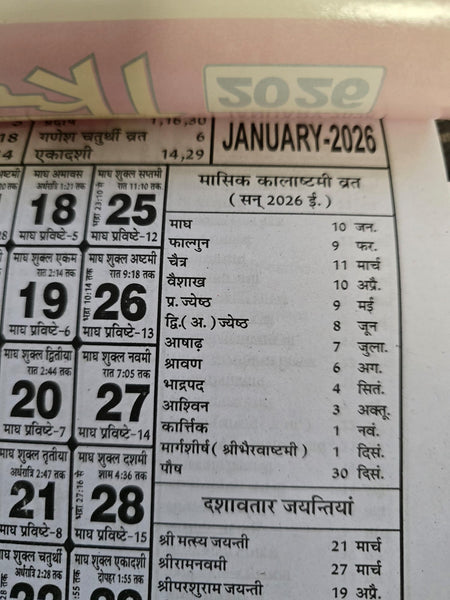 2026
प्रदोष 1,16,30
18 गणेश चतुर्थी व्रत 6
एकादशी 14,29
JANUARY-2026
माघ अमावस
अर्धरात्रि 1:21 तक
18
माघ प्रविष्टे-5
माघ शुक्ल सप्तमी
रात 11:10 तक
भद्रा 23:10 से
25
माघ प्रविष्टे-12
माघ शुक्ल एकम
रात 2:14 तक
19
माघ प्रविष्टे-6
माघ शुक्ल अष्टमी
रात 9:18 तक
भद्रा 10:14 तक
26
माघ प्रविष्टे-13
माघ शुक्ल द्वितीया
रात 2:44 तक
20
माघ प्रविष्टे-7
माघ शुक्ल नवमी
रात 7:05 तक
27
माघ प्रविष्टे-14
माघ शुक्ल तृतीया
अर्धरात्रि 2:47 तक
21
माघ प्रविष्टे-8
माघ शुक्ल दशमी
शाम 4:36 तक
भद्रा 27:16 से
28
माघ प्रविष्टे-15
माघ शुक्ल चतुर्थी
अर्धरात्रि 2:28 तक
माघ शुक्ल एकादशी
दोपहर 1:55 तक
मासिक कालाष्टमी व्रत
( सन् 2026 ई. )
माघ 10 जन.
फाल्गुन 9 फर.
चैत्र 11 मार्च
वैशाख 10 अप्रै.
प्र.ज्येष्ठ 9 मई
द्वि.( अ. ) ज्येष्ठ 8 जून
आषाढ़ 7 जुला.
श्रावण 6 अग.
भाद्रपद 4 सितं.
आश्विन 3 अक्तू.
कार्त्तिक 1 नवं.
मार्गशीर्ष ( श्रीभैरवाष्टमी ) 1 दिसं.
पौष 30 दिसं.
दशावतार जयन्तियां
श्री मत्स्य जयन्ती 21 मार्च
श्रीरामनवमी 27 मार्च
श्रीपरशुराम जयन्ती 19 अप्रै.